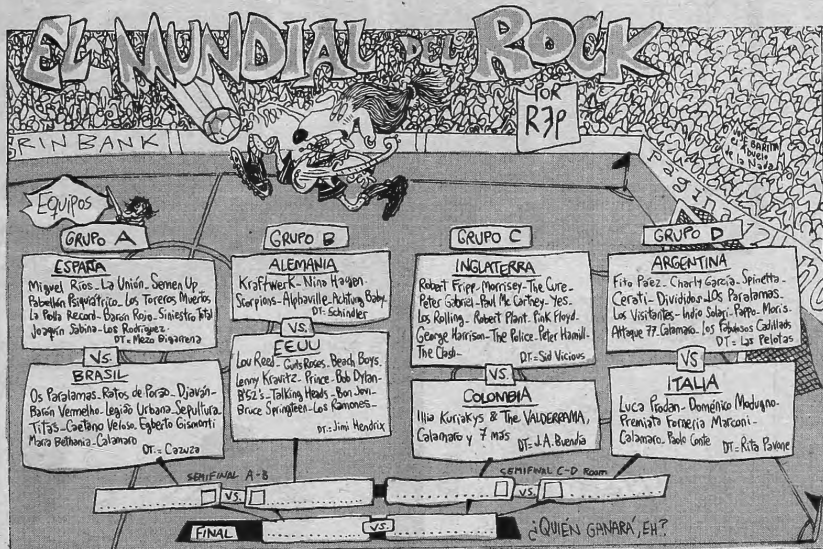 EL MUNDIAL DEL ROCK
POR
REP
RIN BANK
Página
Equipos
GRUPO A
ESPAÑA
Miguel Ríos - La Unión - Semen Up
Pabellón Psiquiátrico - Los Toreros Muertos
La Polla Record - Barón Rojo - Siniestro Total
Joaquín Sabina - Los Rodríguez -
DT= Mezo Bigarrena
VS.
BRASIL
Os Paralamas - Ratos de Porao - Djaván -
Barón Vermelho - Legião Urbana - Sepultura -
Titãs - Caetano Veloso - Egberto Gismonti
María Bethania - Calamaro
DT.= Cazuza
GRUPO B
ALEMANIA
Kraftwerk - Nina Hagen -
Scorpions - Alphaville - Achtung Baby -
DT: Schindler
VS.
EEUU
Lou Reed - Guns Roses - Beach Boys -
Lenny Kravitz - Prince - Bob Dylan -
B'52's - Talking Heads - Bon Jovi -
Bruce Springteen - Los Ramones -
DT.: Jimi Hendrix
GRUPO C
INGLATERRA
Robert Fripp - Morrisey - The Cure -
Peter Gabriel - Paul Mc Cartney - Yes -
Los Rolling - Robert Plant - Pink Floyd -
George Harrison - The Police - Peter Hamill -
The Clash -
DT.= Sid Vicious
VS.
COLOMBIA
Illia Kuriakys & The VALDERRAMA,
Calamaro y 7 más
DT= J.A. Buendía
GRUPO D
ARGENTINA
Fito Páez - Charly García - Spinetta -
Cerati - Divididos - Los Paralamas -
Los Visitantes - Indio Solari - Pappo - Moris -
Attaque 77 - Calamaro - Los Fabulosos Cadillacs
DT= Las Pelotas
VS
ITALIA
Luca Prodan - Doménico Modugno -
Premiata Forneria Marconi -
Calamaro - Paolo Conte
DT= Rita Pavone
SEMIFINAL A-B
VS.
SEMIFINAL C-D Room
VS.
FINAL
VS.
¿QUIÉN GANARÁ, EH?